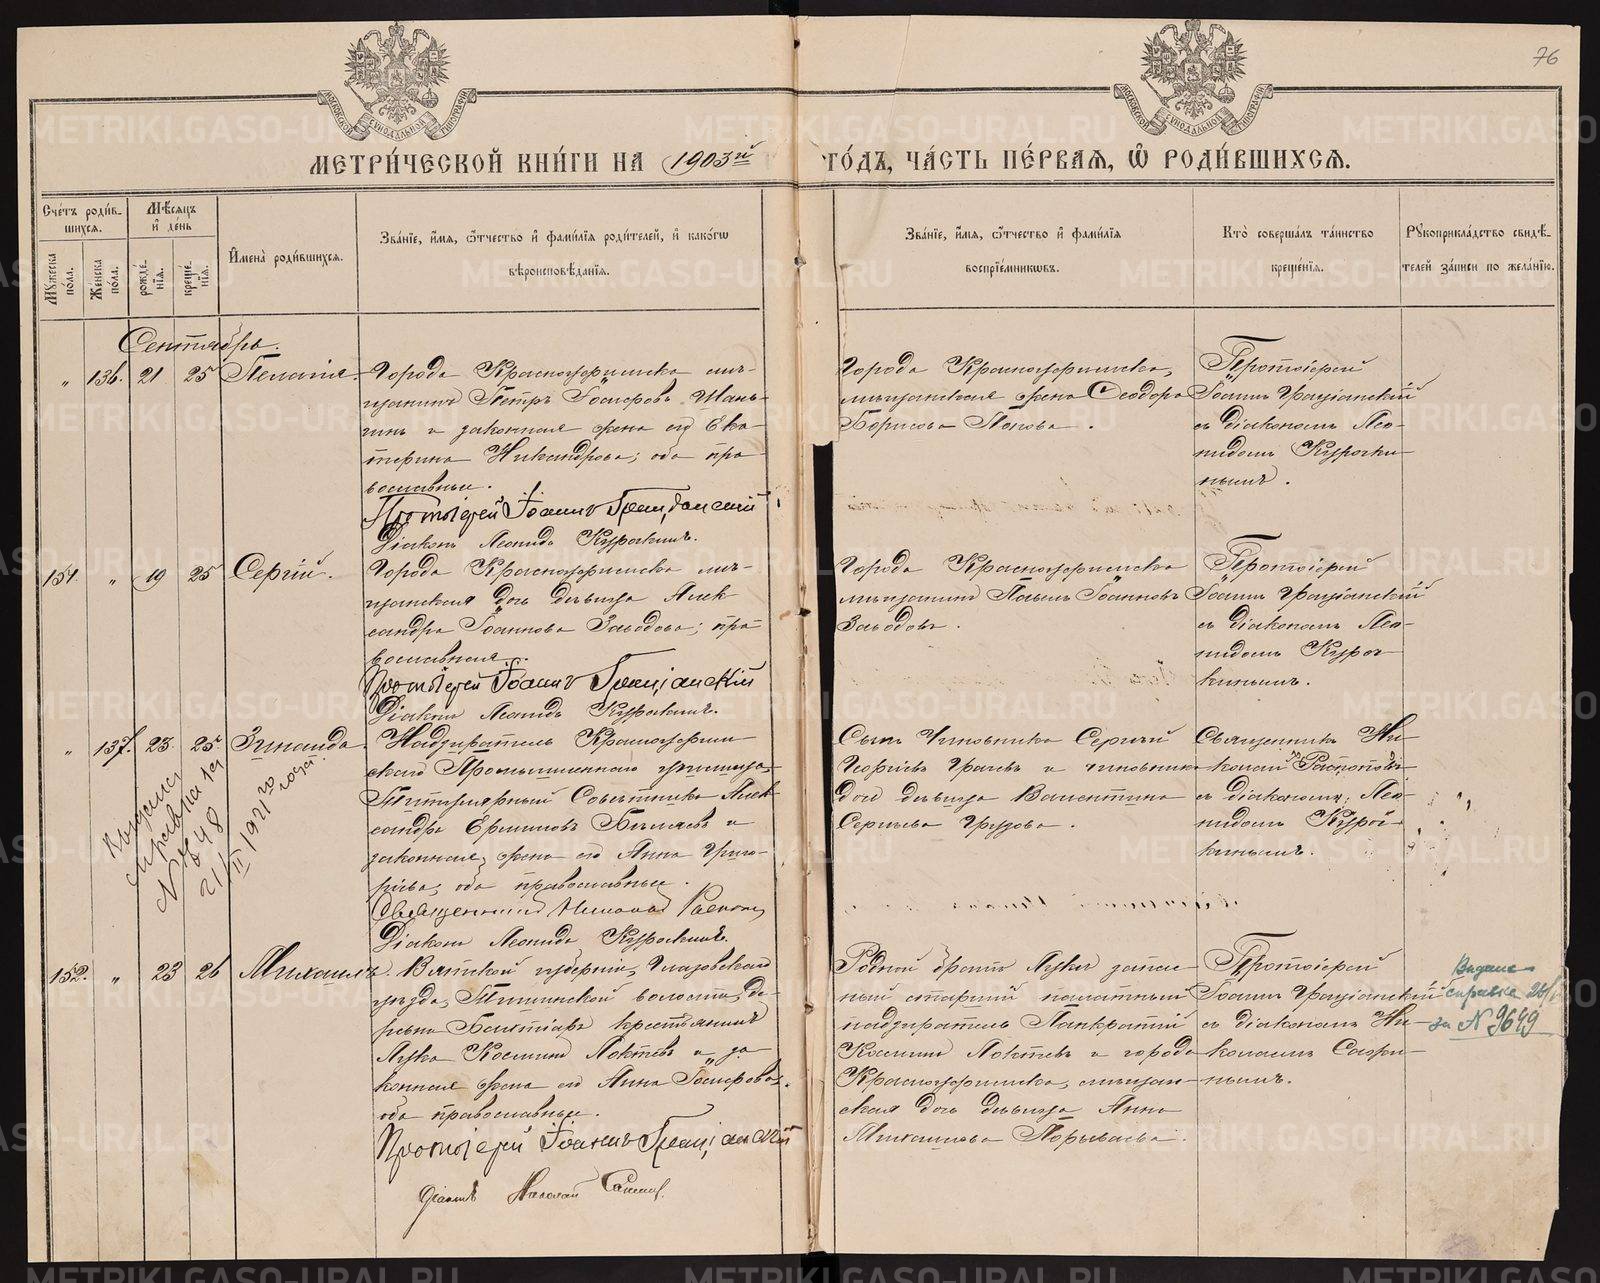 76
МОСКОВСКОЙ СУНОДАЛЬНОЙ ТИПОГРАФІИ
МОСКОВСКОЙ СУНОДАЛЬНОЙ ТИПОГРАФІИ
МЕТРИ́ЧЕСКОЙ КНИ́ГИ НА 1903й ГО́ДЪ, ЧА́СТЬ ПЕ́РВАЯ, Ѿ РОДИ́ВШИХСЯ.
Сче́тъ роди́в-
шихся.
Мꙋжеска по́ла.
Же́нска по́ла.
Мѣ́сяцъ
и҆ де́нь
рожде́-
нїя.
креще́-
нїя.
И҆мена̀ роди́вшихся.
Зва́нїе, и҆́мя, ѻ҆́тчество и҆ фами́лїя роди́телей, и҆ како́гѡ
вѣроисповѣ́данїя.
Зва́нїе, и҆́мя, ѻ҆́тчество и҆ фами́лїя
воспрїе́мниковъ.
Кто̀ соверша́лъ та́инство
креще́нїя.
Рꙋкоприкла́дство свидѣ́-
телей за́писи по жела́нїю.
Сентябрь.
" 136. 21 25 Пелагія.
Города Красноуфимска мѣ-
щанинъ Петръ Іосифовъ Шань-
гинъ и законная жена его Ека-
терина Никандрова; оба пра-
вославные.
Протоіерей Іоаннъ Граціанскій
Діаконъ Леонидъ Курочкинъ.
Города Красноуфимска,
мѣщанская жена Ѳеодора
Борисова Попова.
Протоіерей
Іоаннъ Граціанскій
съ діакономъ Лео-
нидомъ Курочки-
нымъ.
151. " 19 25 Сергій.
Города Красноуфимска мѣ-
щанская дочь дѣвица Алек
сандра Іоаннова Заводова; пра-
вославная.
Протоіерей Іоаннъ Граціанскій
Діаконъ Леонидъ Курочкинъ.
Города Красноуфимска
мѣщанинъ Павелъ Іоанновъ
Заводовъ.
Протоіерей
Іоаннъ Граціанскій
съ діакономъ Лео-
нидомъ Куроч
кинымъ.
" 137. 23. 25. Зинаида.
Выдана
справка
№ 548
21/II 1921го
года.
Надзиратель Красноуфим
скаго Промышленнаго училища,
Титулярный Совѣтникъ Алек
сандръ Ермиловъ Бѣляевъ и
законная жена его Анна Григо-
рьева, оба православные.
Священникъ Николай
Діаконъ Леонидъ Курочкинъ.
Сынъ Чиновника Сергій
Георгіевъ и чиновника
дочь дѣвица Валентина
Сергѣева
Священникъ Ни-
колай
съ діакономъ Лео-
нидомъ Куроч-
кинымъ.
152. " 23 26 Михаилъ.
Вятской губерніи, Глазовскаго
уѣзда, волости, де-
ревни крестьянинъ
Лука Косминъ Локтевъ и за
конная жена его Анна Іосифова,
оба православные.
Протоіерей Іоаннъ Граціанскій
Діаконъ Николай
Родной братъ Луки запас
ный старшій палатный
надзиратель Панкратій
Косминъ Локтевъ и города
Красноуфимска, мѣщан-
ская дочь дѣвица Анна
Михаилова Порываева.
Протоіерей
Іоаннъ Граціанскій
съ діакономъ Ни-
колаемъ
нымъ.
Выдана
справка
за № 9649
METRIKI.GASO-URAL.RU